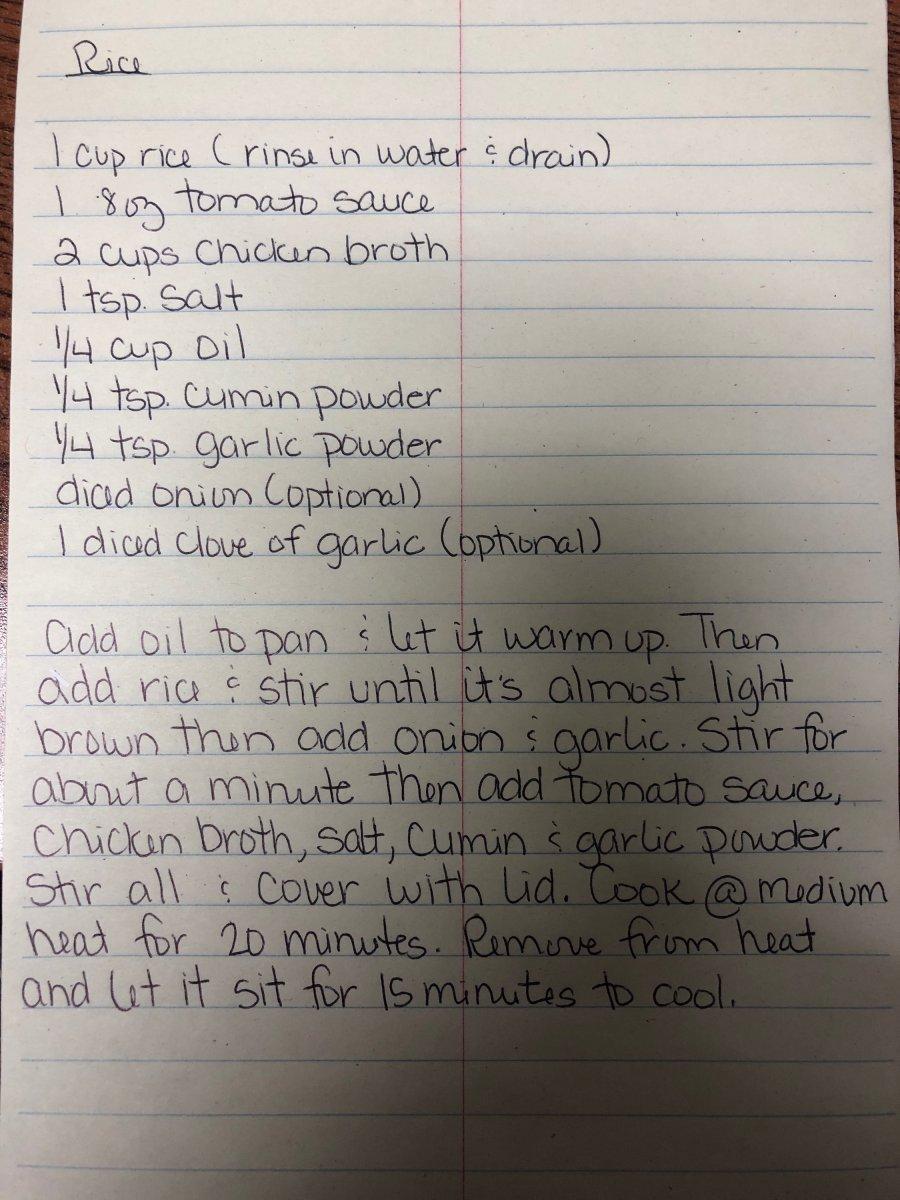 Rice
1 cup rice (rinse in water & drain)
1 8oz tomato sauce
2 cups chicken broth
1 tsp. salt
1/4 cup oil
1/4 tsp. cumin powder
1/4 tsp. garlic powder
diced onion (optional)
1 diced clove of garlic (optional)
Add oil to pan & let it warm up. Then
add rice & stir until it's almost light
brown then add onion & garlic. Stir for
about a minute then add tomato sauce,
chicken broth, salt, cumin & garlic powder.
Stir all & cover with lid. Cook @ medium
heat for 20 minutes. Remove from heat
and let it sit for 15 minutes to cool.